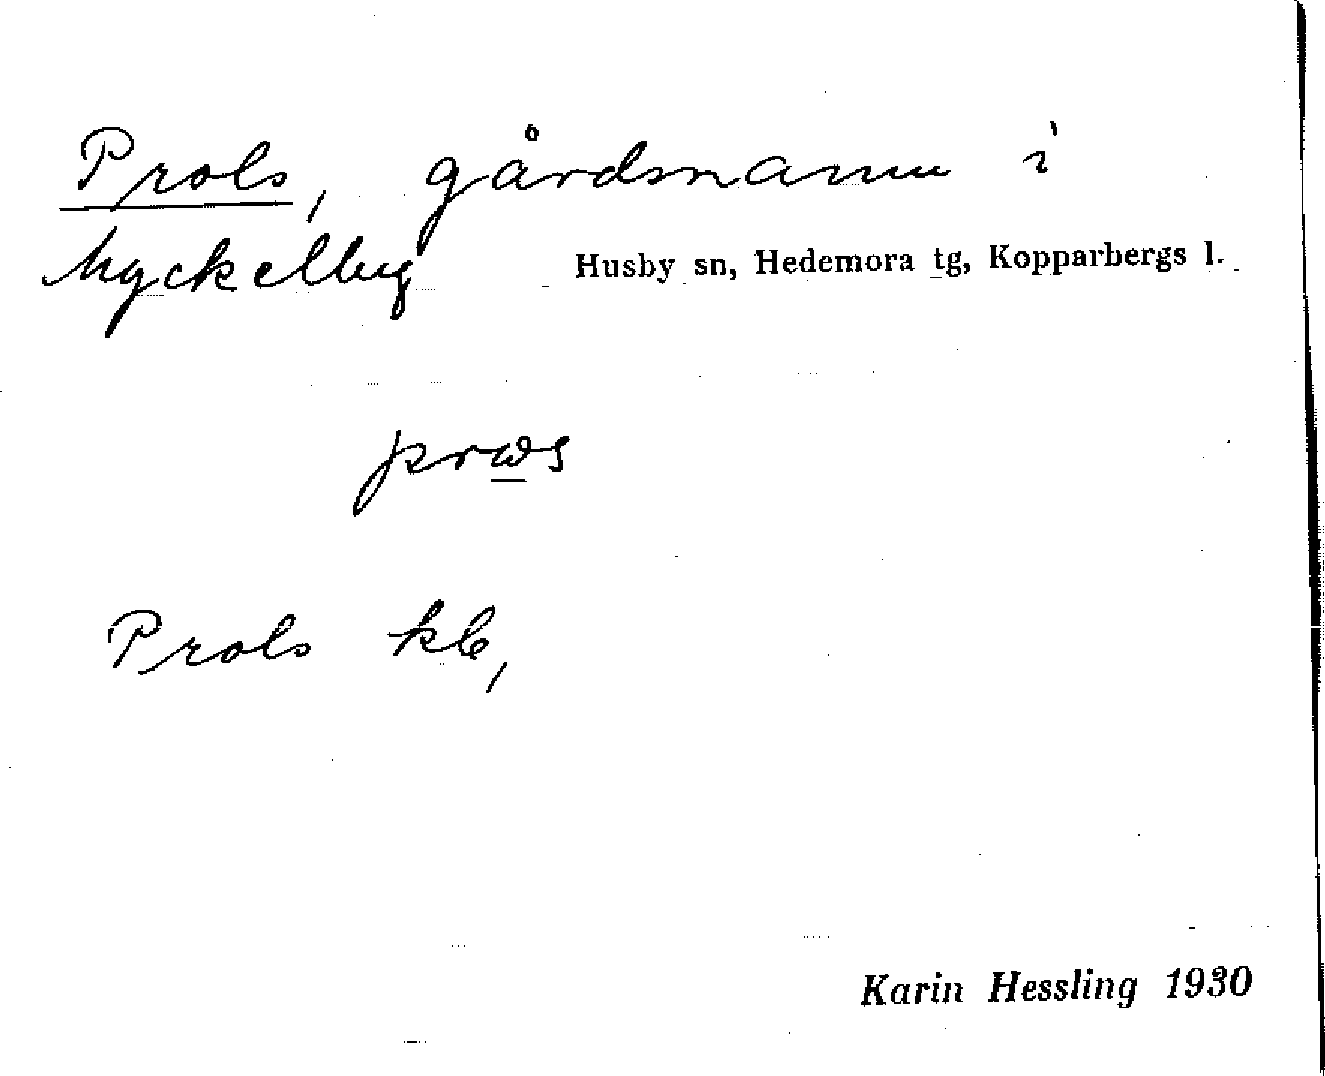 Prols, gårdsnamn i
Myckelby Husby sn, Hedemora tg, Kopparbergs l.
Prols kb,
Karin Hessling 1930